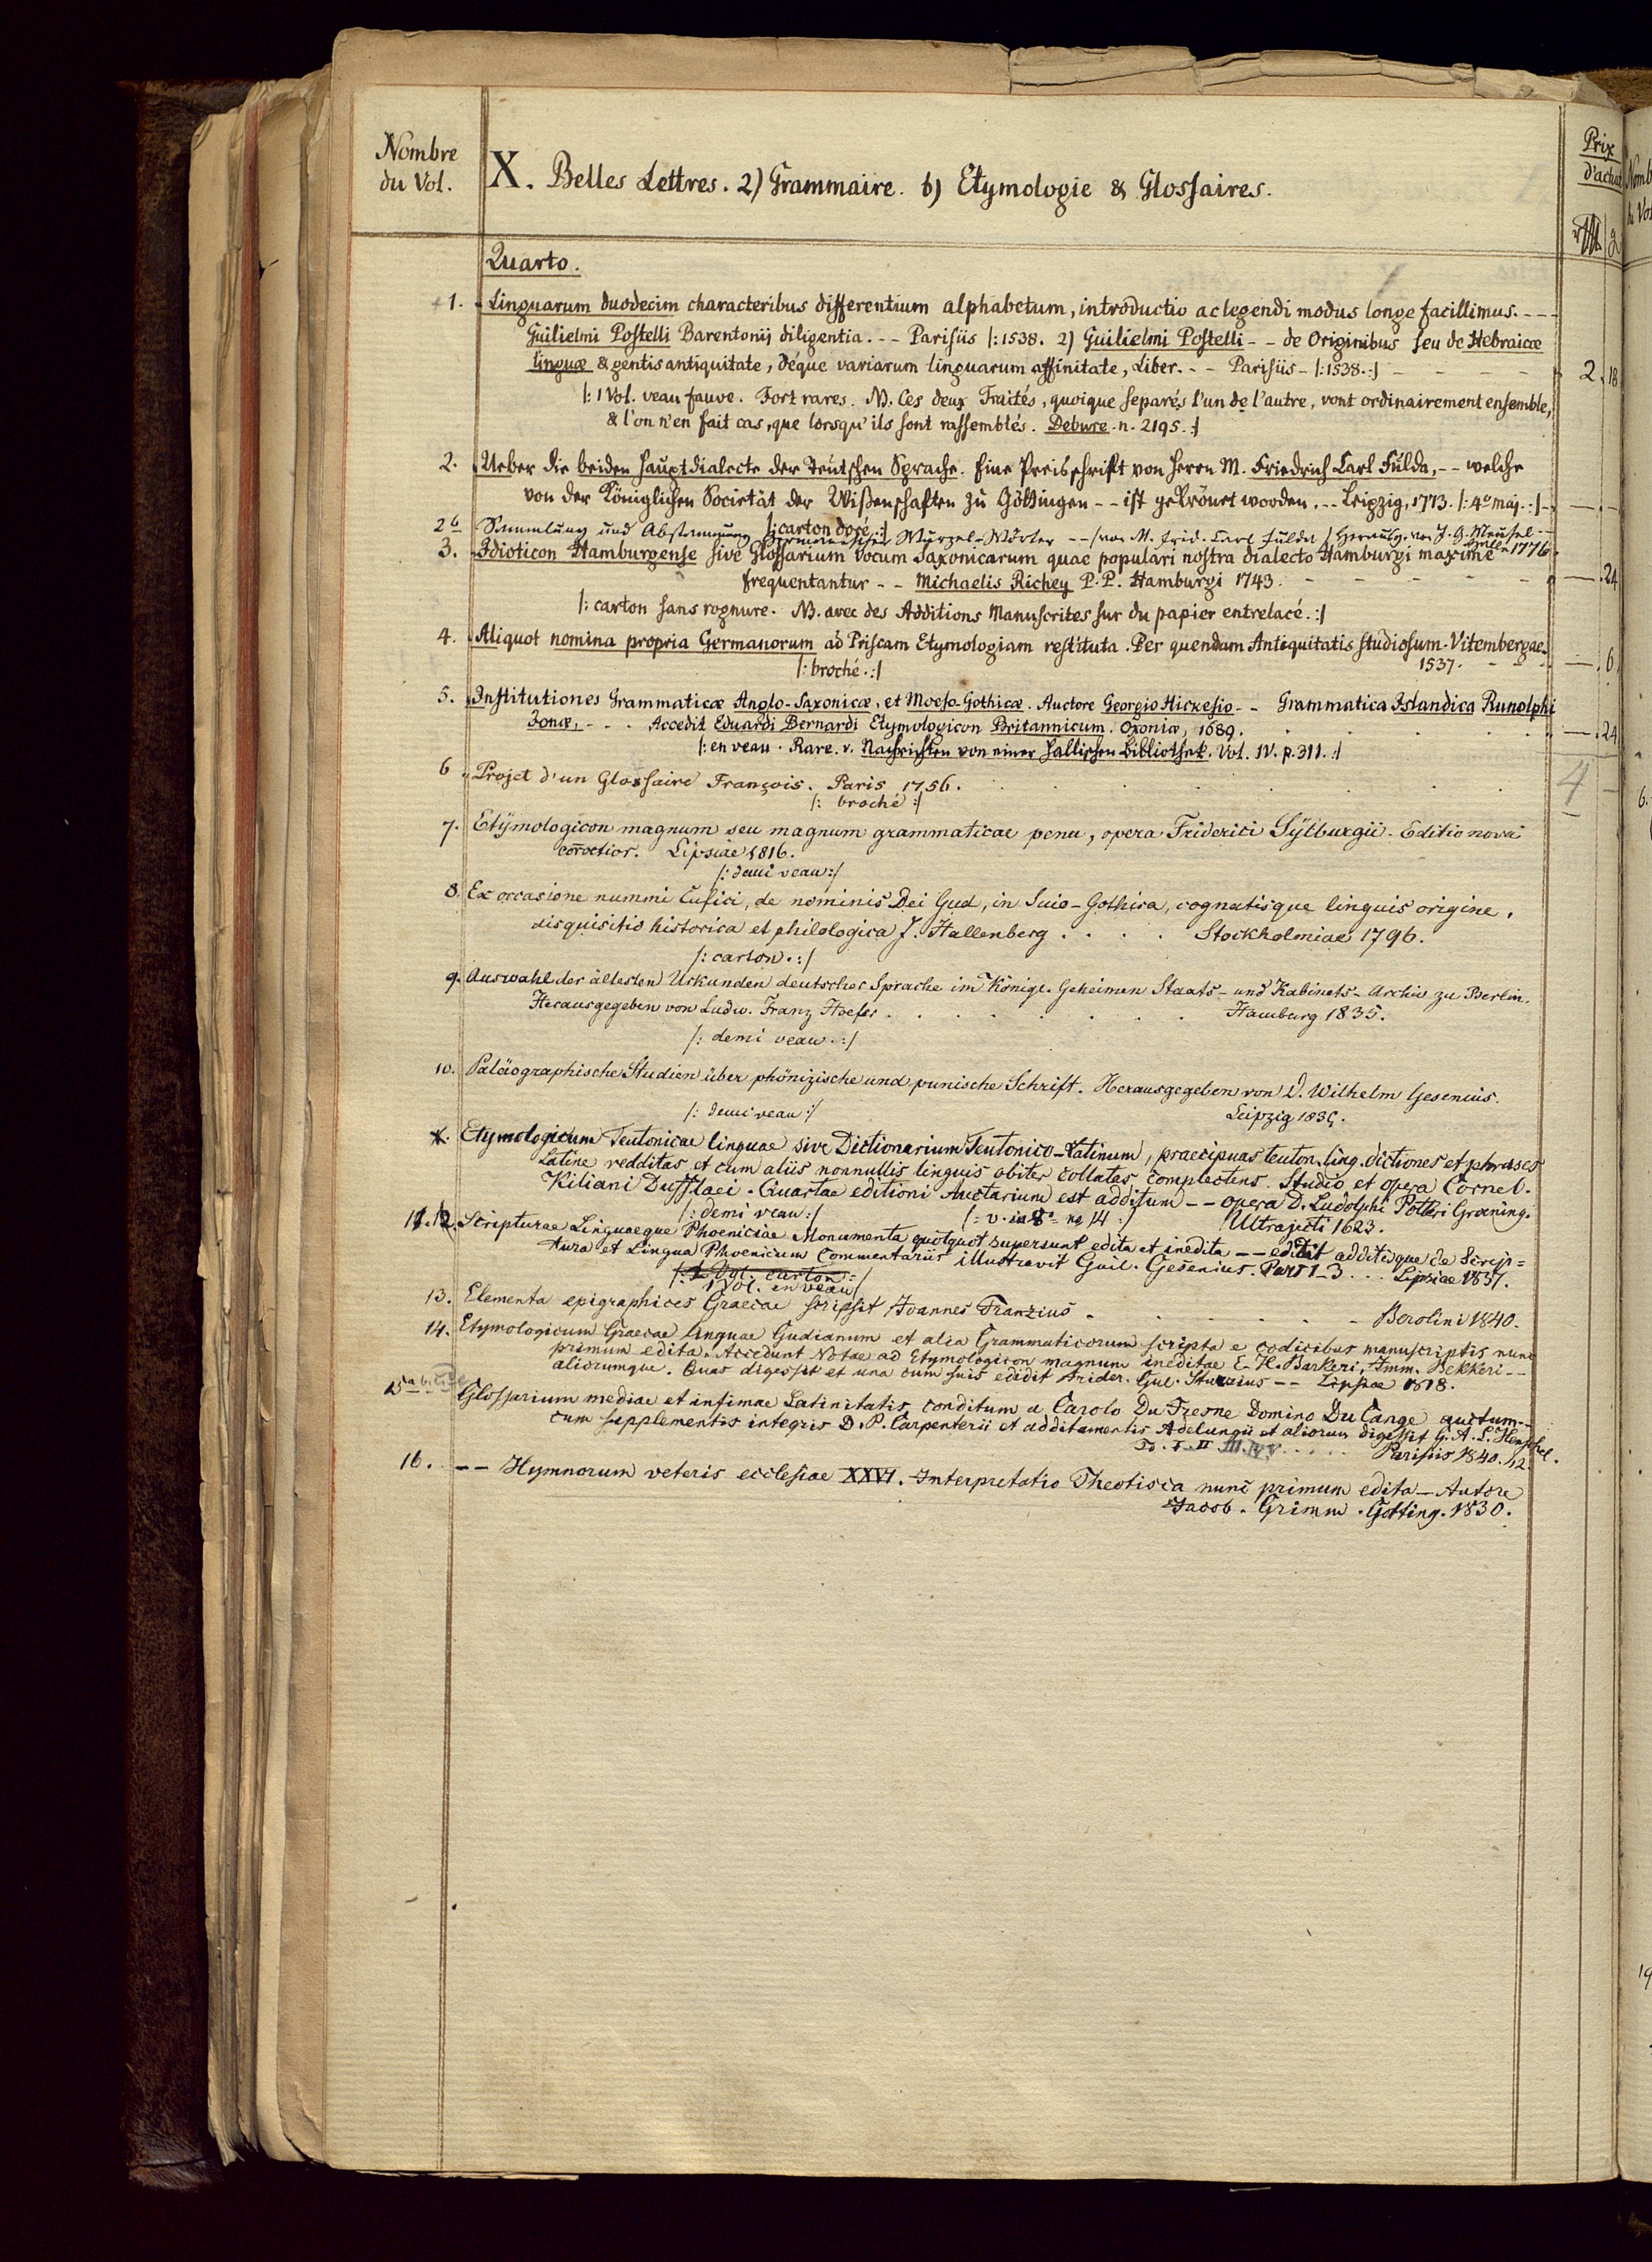 Nombre
du Vol.
X. Belles Lettres. 2) Grammaire. b) Etymologie & Glossaires.
Prix
d'achat
Quarto.
1. Linguarum duodecim characteribus differentium alphabetum, introductio ac legendi modus longe facillimus. - - -
Guilielmi Postelli Barentonij diligentia. - - Parisiis |: 1538. 2) Guilielmi Postelli - - de Originibus seu de Hebraicæ
linguæ & gentis antiquitate, déque variarum linguarum affinitate, Liber. - - Parisiis - |: 1538. :| 2. 18
|: 1 Vol. veau fauve. Fort rares. NB. Ces deux Traités, quoique separés l'un de l'autre, vont ordinairement ensemble,
& l'on n'en fait cas, que lorsqu'ils sont rassemblés. Debure. n. 2195. :|
2. Ueber die beiden Hauptdialecte der Teutschen Sprache. Eine Preisschrift von Herrn M. Friedrich Carl Fulda, - - welche
von der Königlichen Societät der Wißenschaften zu Göttingen - - ist gekrönet worden. - - Leipzig, 1773. |: 4º maj. :|
|: carton doré :|
2b Sammlung und Abstammung Germanischer Wurzel-Wörter - - von M. Frid. Carl Fulda / Herausg. von J. G. Meusel - -
Halle 1776.
3. Idioticon Hamburgense sive Glossarium vocum Saxonicarum quae populari nostra dialecto Hamburgi maxime
frequentantur - - Michaelis Richey P. P. Hamburgi 1743. - - - - - 24
|: carton sans rognure. NB. avec des Additions Manuscrites sur du papier entrelacé. :|
4. Aliquot nomina propria Germanorum ad Priscam Etymologiam restituta. Per quendam Antiquitatis studiosum. Vitembergae.
|: broché. :| 1537. - - - 6
5. Institutiones Grammaticæ Anglo-Saxonicæ, et Moeso-Gothicæ. Auctore Georgio Hickesio - - Grammatica Islandica Runolphi
Jonæ, - - . Accedit Eduardi Bernardi Etymologicon Britannicum. Oxoniæ, 1689. . . . . 24
|: en veau. Rare. v. Nachrichten von einer hallischen Bibliothek. Vol. IV. p. 311. :|
6 Projet d'un Glossaire François. Paris 1756. 4
|: broché :|
7. Etÿmologicon magnum seu magnum grammaticae penu, opera Friderici Sÿlburgii. Editio nova
correctior. Lipsiae 1816.
|: demi veau :|
8. Ex occasione nummi Cufici, de nominis Dei Gud, in Suio-Gothica, cognatisque linguis origine,
disquisitio historica et philologica J. Hallenberg . . . . Stockholmiae 1796.
|: carton. :|
9. Auswahl der ältesten Urkunden deutscher Sprache im Königl. Geheimen Staats- und Kabinets-Archiv zu Berlin.
Herausgegeben von Ludw. Franz Hoefer . . . . . . . Hamburg 1835.
|: demi veau. :|
10. Paläographische Studien über phönizische und punische Schrift. Herausgegeben von D. Wilhelm Gesenius.
|: demi veau :| Leipzig 1835.
Etymologicum Teutonicae linguae sive Dictionarium Teutonico-Latinum, praecipuas teuton. ling. dictiones et phrases
Latine redditas et cum aliis nonnullis linguis obiter collatas complectens. Studio et opera Cornel.
Kiliani Dufflaei. Quartae editioni Auctarium est additum - - opera D. Ludolphi Potteri Groening.
|: demi veau :| |: v. in 8º no 14 :| Ultrajecti 1623.
12. Scripturae Linguaeque Phoeniciae Monumenta quotquot supersunt edita et inedita - - edidit additisque de Scrip=
tura et Lingua Phoenicum Commentariis illustravit Guil. Gesenius. Part 1-3 . . . Lipsiae 1837.
|: 1 Vol. carton :|
1 Vol. en veau
13. Elementa epigraphices Graecae scripsit Joannes Franzius - - - - - Berolini 1840.
14. Etymologicum Graecae linguae Gudianum et alia Grammaticorum scripta e codicibus manuscriptis nunc
primum edita. Accedunt Notae ad Etymologicon magnum ineditae E. H. Barkeri, Imm. Bekkeri - -
aliorumque. Quas digessit et una cum suis edidit Frider. Gul. Sturzius - - Lipsiae 1818.
15 Glossarium mediae et infimae Latinitatis conditum a Carolo Du Fresne Domino Du Cange auctum - -
cum supplementis integris D. P. Carpenterii et additamentis Adelungii et aliorum digessit G. A. L. Henschel.
To. I. II III. IV. V . . . . . Parisiis 1840. 42.
16. - - Hymnorum veteris ecclesiae XXVI. Interpretatio Theotisca nunc primum edita - Autore
Jacob. Grimm. Gotting. 1830.